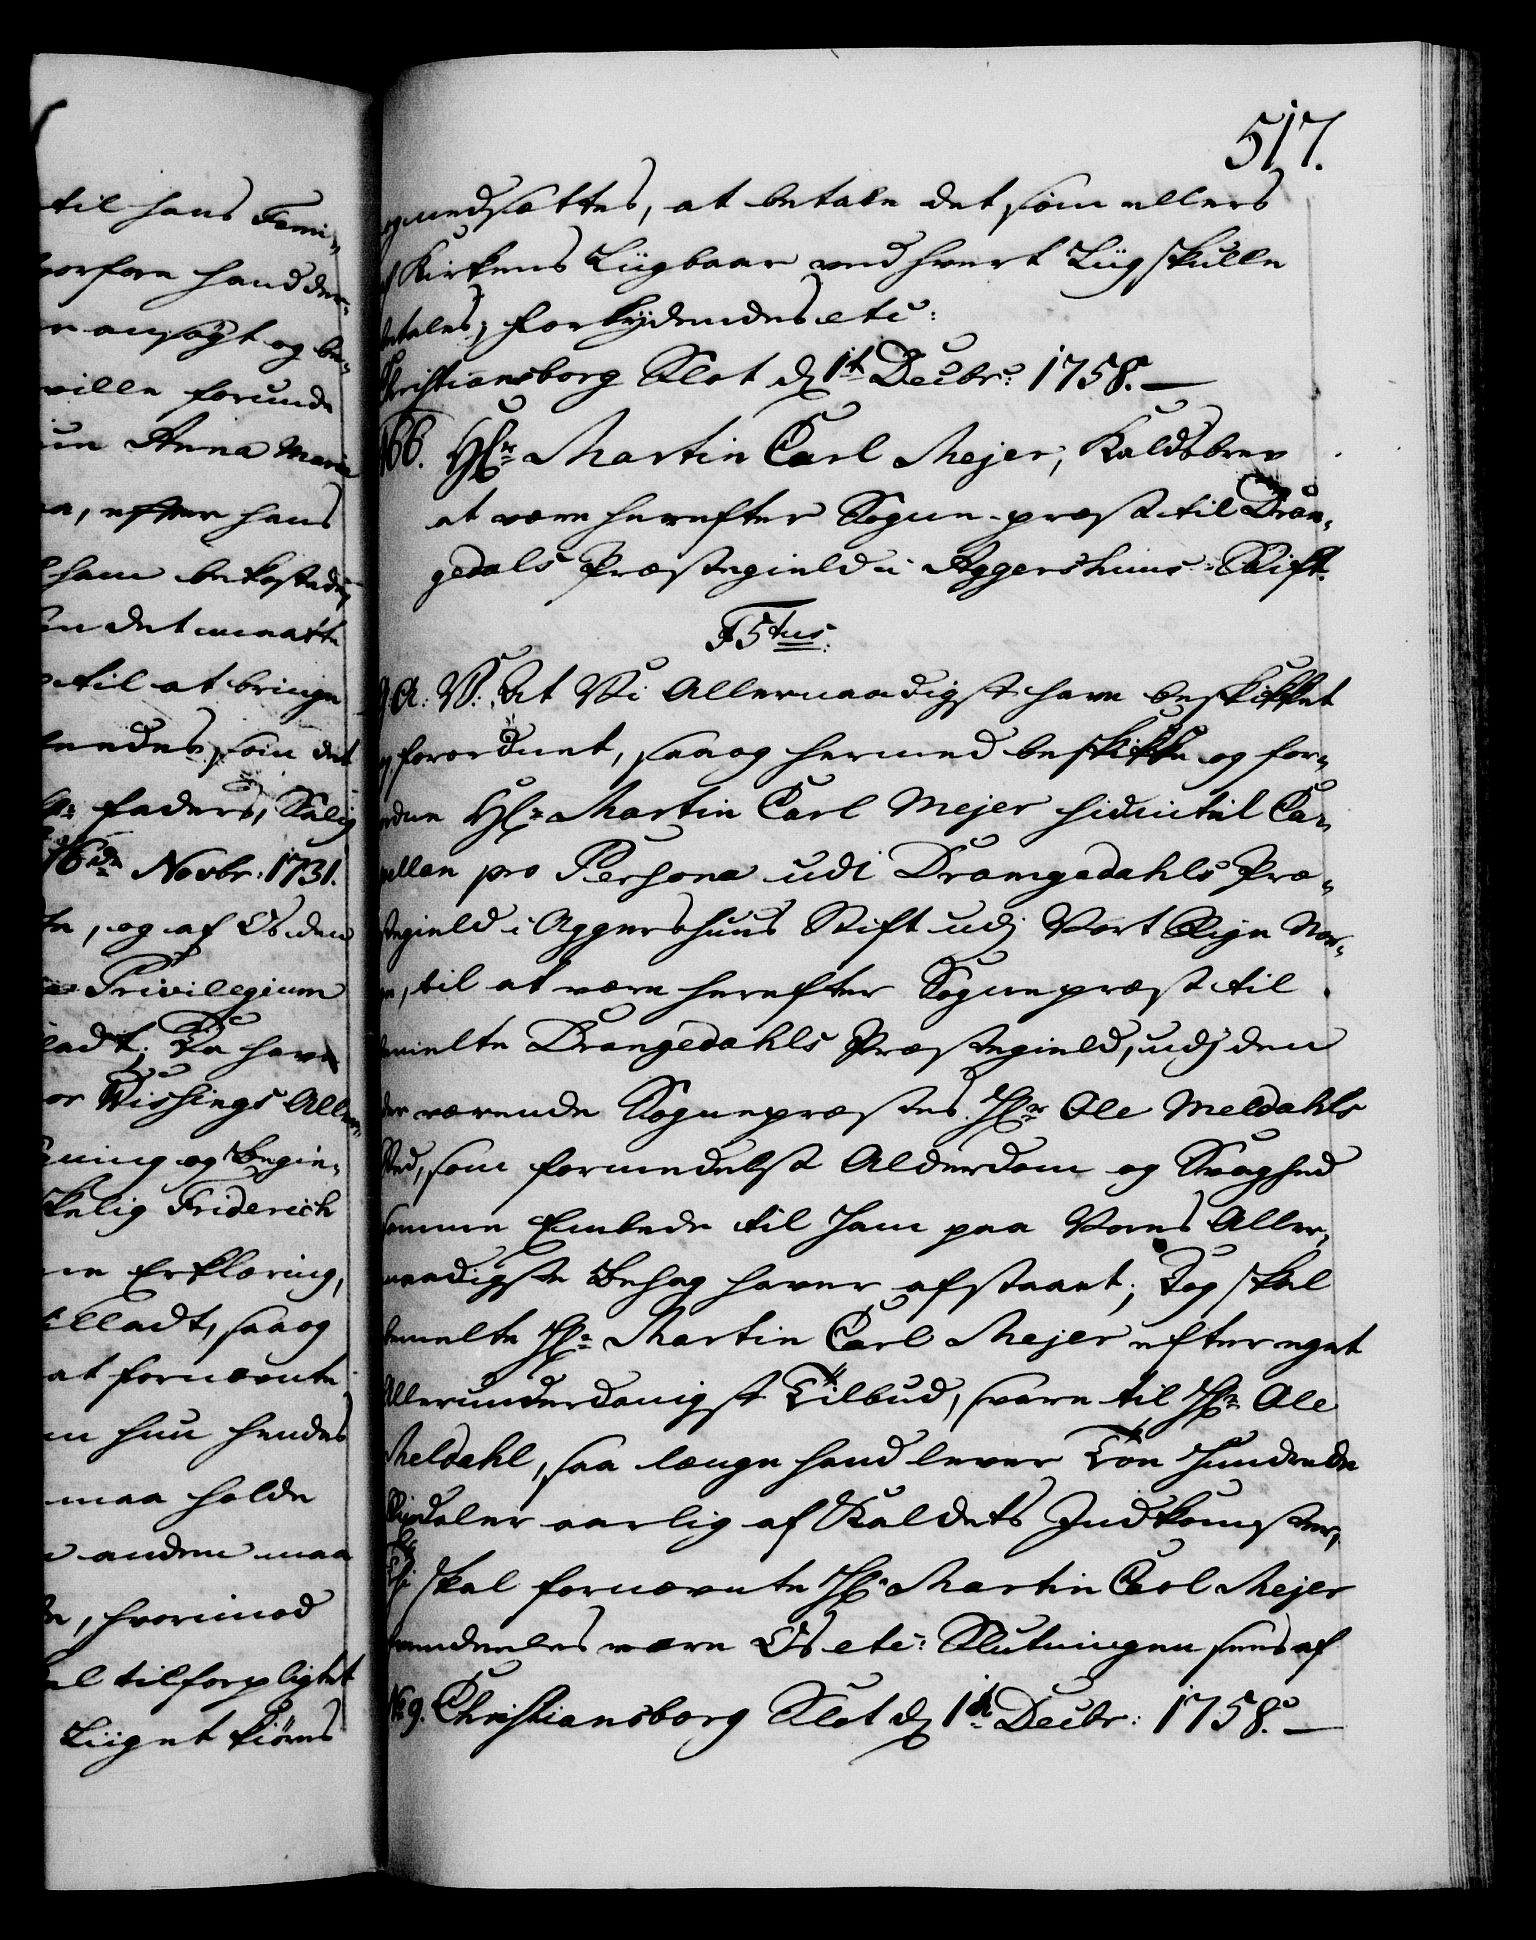 til hans Fami-
hvorfore hand der-
ansøgt og be-
ville forunde
Anna Maria
, efter hans
ham bekostede,
det maatte
til at bringe
sendes, som det
Faders, Salig
16de Novbr: 1731.
, og af Os den
Privilegium
ladt; Da have
Wissings Aller-
ning og Begie-
kelig Friderich
Erklæring,
tilladt, saa og
at fornævnte
hun hendes
maa holde
anden maa
, hvorimod
tilforpligtet
Liiget kiøres
517.
ogmedsættes, at betale det som ellers
Kirkens Liigbaar ved hvert Liig skulle
betales, forbydendes etc:
Christiansborg Slot d. 1t Decbr: 1758. —
166. Hr: Martin Carl Mejer, Kaldsbrev
at være herefter Sogne-præst til Dran-
gedals Præstegield i Aggershuus-Stift.
F5tus.
G. A: V: At Vi Allernaadigst have beskikket
og forordnet, saa og hermed beskikke og for-
ordne Hr: Martin Carl Mejer hidintil Ca-
pellan pro Persona udi Drangedahls Præ-
stegield i Aggershuus Stift udj Vort Rige Nor-
ge, til at være herefter Sognepræst til
bemelte Drangedahls Præstegield, udj den
der værende Sognepræstes Hr: Ole Meldahls
Sted, som formedelst Alderdom og Svaghed
samme Embede til Ham paa Vores Aller-
naadigste Behag haver afstaaet; Dog skal
bemelte Hr: Martin Carl Mejer efter eget
Allerunderdanigst Tilbud, svare til Hr: Ole
Meldahl, saa længe hand lever Een Hundrede
Rixdaler aarlig af Kaldets Indkomster,
Thi skal fornævnte Hr: Martin Carl Mejer
være Os etc: Slutningen sees af
No 9. Christiansborg Slot d. 1t Decbr: 1758. —